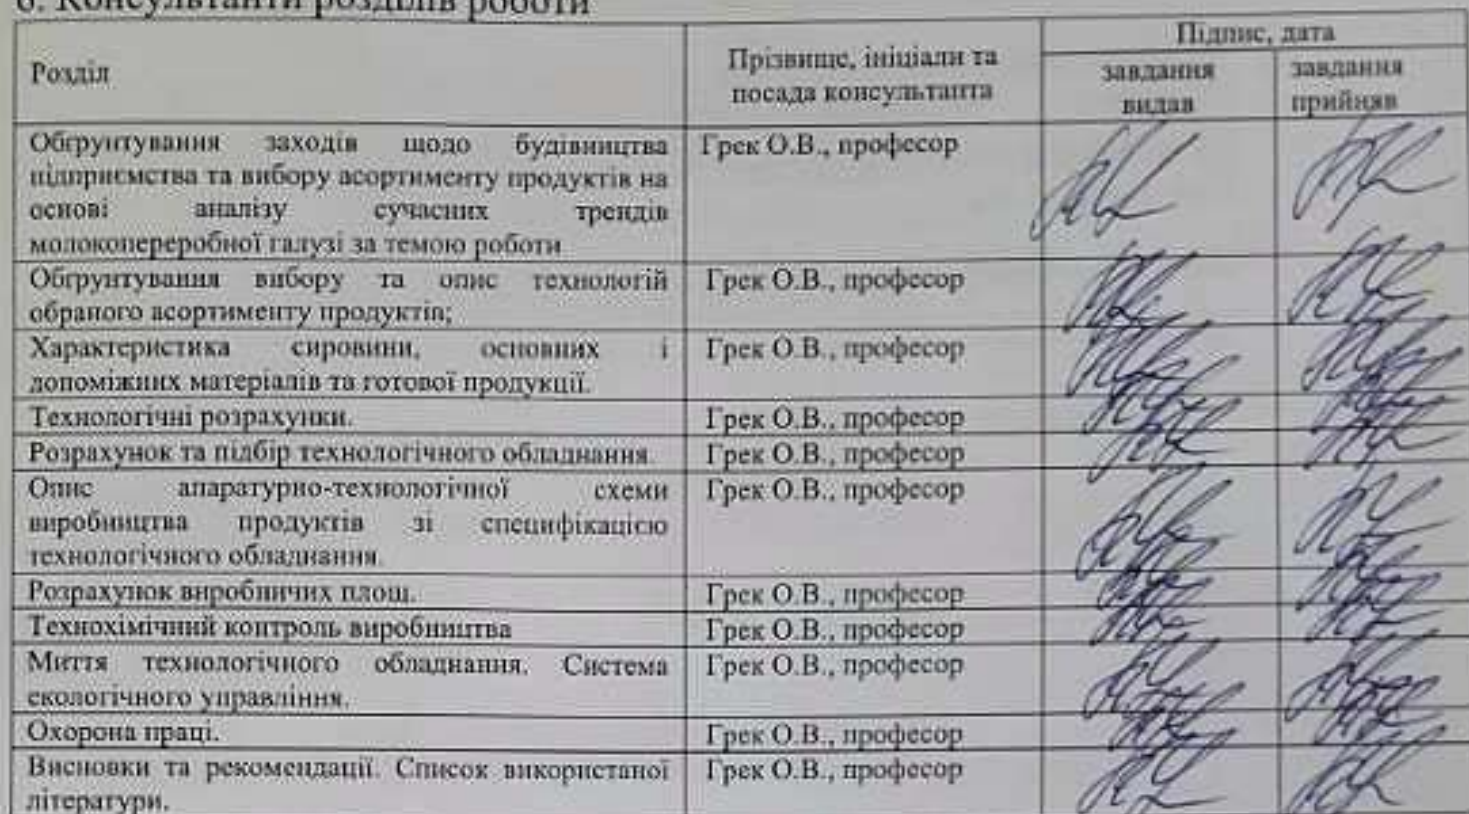 6. Консультанти розділів роботи
Розділ
Прізвище, ініціали та
посада консультанта
Підпис, дата
завдання
видав
завдання
прийняв
Обґрунтування заходів щодо будівництва
підприємства та вибору асортименту продуктів на
основі аналізу сучасних трендів
молокопереробної галузі за темою роботи
Грек О.В., професор
Обґрунтування вибору та опис технологій
обраного асортименту продуктів;
Грек О.В., професор
Характеристика сировини, основних і
допоміжних матеріалів та готової продукції.
Грек О.В., професор
Технологічні розрахунки.
Грек О.В., професор
Розрахунок та підбір технологічного обладнання.
Грек О.В., професор
Опис апаратурно-технологічної схеми
виробництва продуктів зі специфікацією
технологічного обладнання.
Грек О.В., професор
Розрахунок виробничих площ.
Грек О.В., професор
Технохімічний контроль виробництва
Грек О.В., професор
Миття технологічного обладнання. Система
екологічного управління.
Грек О.В., професор
Охорона праці.
Грек О.В., професор
Висновки та рекомендації. Список використаної
літератури.
Грек О.В., професор